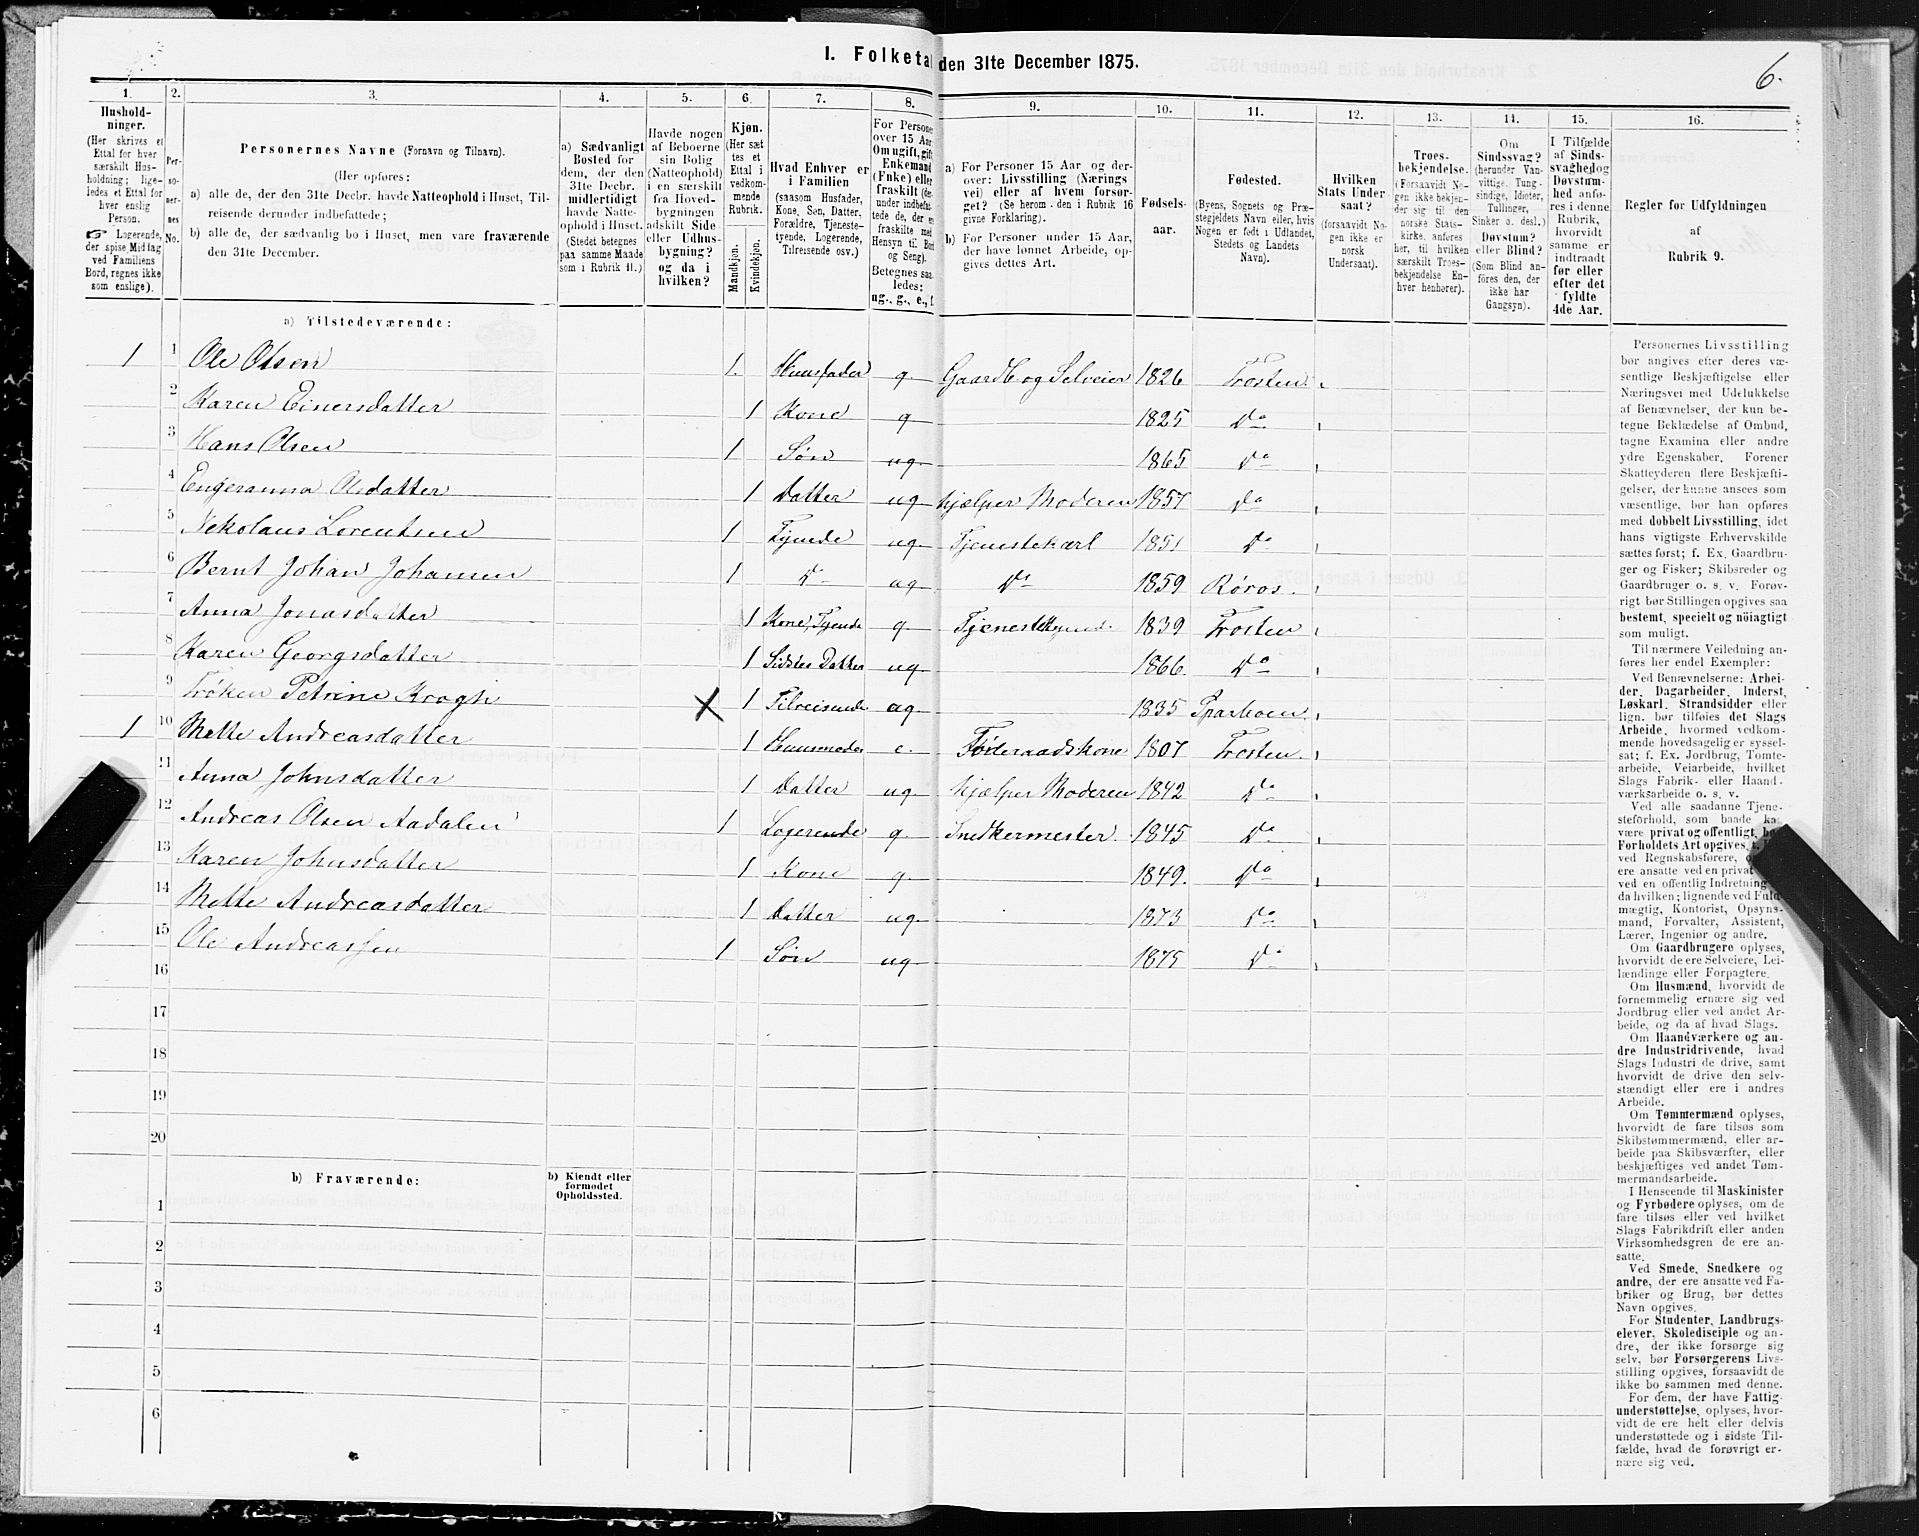 I. Folketal den 31te December 1875.
6.
1. 2. 3. 4. 5. 6. 7. 8. 9. 10. 11. 12. 13. 14. 15. 16.
Hushold-
ninger.
(Her skrives et
Ettal for hver
særskilt Hus-
holdning; lige-
ledes et Ettal for
hver enslig
Person.
☞ Logerende,
der spise Middag
ved Familiens
Bord, regnes ikke
som enslige).
Per-
so-
ner-
nes
No.
Personernes Navne (Fornavn og Tilnavn).
(Her opføres:
a) alle de, der den 31te Decbr. havde Natteophold i Huset, Til-
reisende derunder indbefattede;
b) alle de, der sædvanlig bo i Huset, men vare fraværende
den 31te December.
a) Sædvanligt
Bosted for
dem, der den
31te Decbr.
midlertidigt
havde Natte-
ophold i Huset.
(Stedet betegnes
paa samme Maade
som i Rubrik 11.)
Havde nogen
af Beboerne
sin Bolig
(Natteophold)
i en særskilt
fra Hoved-
bygningen
adskilt Side-
eller Udhus-
bygning?
og da i
hvilken?
Kjøn.
(Her sæt
tes et
Ettal i
vedkom-
mende
Rubrik.
Mandkjøn.
Kvindekjøn.
Hvad Enhver er
i Familien
(saasom Husfader,
Kone, Søn, Datter,
Forældre, Tjeneste-
tyende, Logerende,
Tilreisende osv.)
For Personer
over 15 Aar
Om ugift, gift,
Enkemand
(Enke) eller
fraskilt (der-
under indbefat-
tede de, der er
fraskilte med
Hensyn til Bord
og Seng).
Betegnes saa-
ledes:
ug., g., e., f.
a) For Personer 15 Aar og der-
over: Livsstilling (Nærings-
vei) eller af hvem forsør-
get? (Se herom den i Rubrik 16
givne Forklaring).
b) For Personer under 15 Aar,
der have lønnet Arbeide, op-
gives dettes Art.
Fødsels-
aar.
Fødested.
(Byens, Sognets og Præ-
stegjeldets Navn eller, hvis
Nogen er født i Udlandet,
Stedets og Landets
Navn).
Hvilken
Stats Under
saat?
(forsaavidt No-
gen ikke er
norsk
Undersaat).
Troes-
bekjendelse.
(Forsaavidt No-
gen ikke bekjen-
der sig til den
norske Stats-
kirke, anføres
her, til hvilken
særskilt Troes-
bekjendelse En-
hver henhører).
Om
Sindssvag?
(herunder Van-
vittige, Tung-
sindige, Idioter,
Tullinger,
Sinker o. desl.)
Døvstum?
eller Blind?
(Som Blind an-
føres den, der
ikke har
Gangsyn).
I Tilfælde
af Sinds-
svaghed og
Døvstum-
hed anfø-
res i denne
Rubrik,
hvorvidt
samme er
indtraadt
før eller
efter det
fyldte
4de Aar.
Regler for Udfyldningen
af
Rubrik 9.
a) Tilstedeværende:
1 1 Ole Olsen 1. Huusfader g. Gaardb og Selveier 1826 Frosten.
2 Karen Einersdatter 1 Kone g 1825 Do
3 Hans Olsen 1 Søn ug. 1865 Do
4 Engeranna Olsdatter 1 Datter ug hjælper Moderen 1857 do
5 Nekolaus Lorentsen 1 Tyende ug. Tjenestekarl 1851 Do
6 Bernt Johan Johansen 1 Do ug Do 1859 Røros.
7 Anna Jonasdatter 1 Kone, Tyende g 1839 Frosten
8 Karen Georgsdatter 1 Sidstes Datter ug 1866 Do
9 Frøken Petrine Krogh X 1 Tilreisende ug. 1835
1 10 Mette Andreasdatter 1 Huusmoder e. Føderaadskone 1807 Frosten.
11 Anna Johnsdatter 1 Datter ug. hjælper Moderen 1842 Do
12 Andreas Olsen Aadalen 1 Logerende g. Snedkermester. 1845 Do
13 Karen Johnsdatter 1 Kone g. 1849. Do
14 Mette Andreasdatter 1 Datter ug 1873 Do
15 Ole Andreassen 1 Søn ug 1875 Do
16
17
18
19
20
b) Fraværende:
b) Kiendt eller
formodet
Opholdssted.
1
2
3
4
5
6
Personernes Livsstilling
bør angives efter deres væ-
sentlige Beskjæftigelse eller
Næringsvei med Udelukkelse
af Benævnelser, der kun be-
tegne Beklædelse af Ombud,
tagne Examina eller andre
ydre Egenskaber. Forener
Skatteyderen flere Beskjæfti-
gelser, der kunne ansees som
væsentlige, bør han opføres
med dobbelt Livsstilling, idet
hans vigtigste Erhvervskilde
sættes først; f. Ex. Gaardbru-
ger og Fisker; Skibsreder og
Gaardbruger o. s. v. Forøv-
rigt bør Stillingen opgives saa
bestemt, specielt og nøiagtigt
som muligt.
Til nærmere Veiledning an-
føres her endel Exempler:
Ved Benævnelserne: Arbei-
der, Dagarbeider, Inderst,
Løskarl, Strandsidder eller
lign. bør tilføies det Slags
Arbeide, hvormed vedkom-
mende hovedsagelig er syssel-
sat; f. Ex. Jordbrug, Tomte-
arbeide, Veiarbeide, hvilket
Slags Fabrik- eller Haand-
værksarbeide o. s. v.
Ved alle saadanne Tjene-
steforhold, som baade ka
være privat og offentligt, bø
Forholdets Art opgives,
ved Regnskabsførere,
ere ansatte ved en privat
ved en offentlig Indretning
da hvilken; lignende ved Fuld-
mægtig, Kontorist, Opsyns-
mand, Forvalter, Assistent,
Lærer, Ingeniør og andre.
Om Gaardbrugere oplyses,
hvorvidt de ere Selveiere, Lei-
lændinge eller Forpagtere.
Om Husmænd, hvorvidt de
fornemmelig ernære sig ved
Jordbrug eller ved andet Ar-
beide, og da af hvad Slags.
Om Haandværkere og an-
dre Industridrivende, hvad
Slags Industri de drive, samt
hvorvidt de drive den selv-
stændigt eller ere i andres
Arbeide.
Om Tømmermænd oplyses,
hvorvidt de fare tilsøs som
Skibstømmermænd, eller ar-
beide paa Skibsværfter, eller
beskjæftiges ved andet Tøm-
mermandsarbeide.
I Henseende til Maskinister
og Fyrbødere oplyses, om de
fare tilsøs eller ved hvilket
Slags Fabrikdrift eller anden
Virksomhedsgren de ere an-
satte.
Ved Smede, Snedkere og
andre, der ere ansatte ved Fa-
briker og Brug, bør dettes
Navn opgives.
For Studenter, Landbrugs-
elever, Skoledisciple og an-
dre, der ikke forsørge sig
selv, bør Forsørgerens Livs-
stilling opgives, forsaavidt de
ikke bo sammen med denne.
For dem, der have Fattig-
understøttelse, oplyses, hvor-
vidt de ere helt eller delvis
understøttede og i sidste Til-
fælde, hvad de forøvrigt er-
nære sig ved.